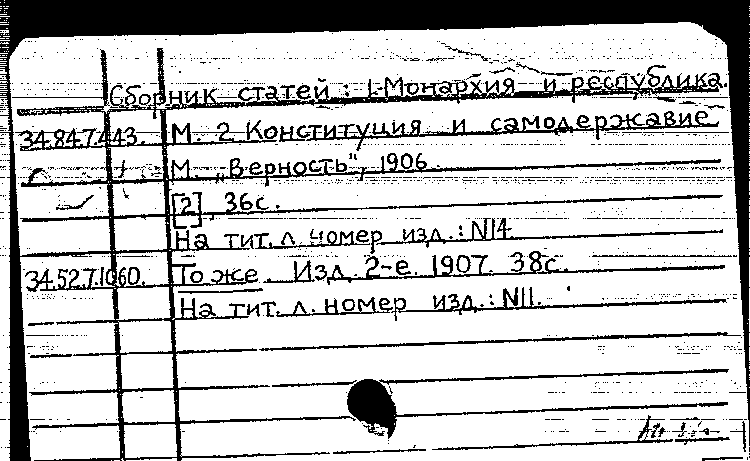 Сборник статей : 1. Монархия и республика.
34.84.7.443. М. 2 Конституция и самодержавие
М. „Верность", 1906.
[2], 36с.
На тит. л. номер изд. : N14
34.52.7.1060. То же. Изд. 2-е. 1907. 38с.
На тит. л. номер изд. : N11.